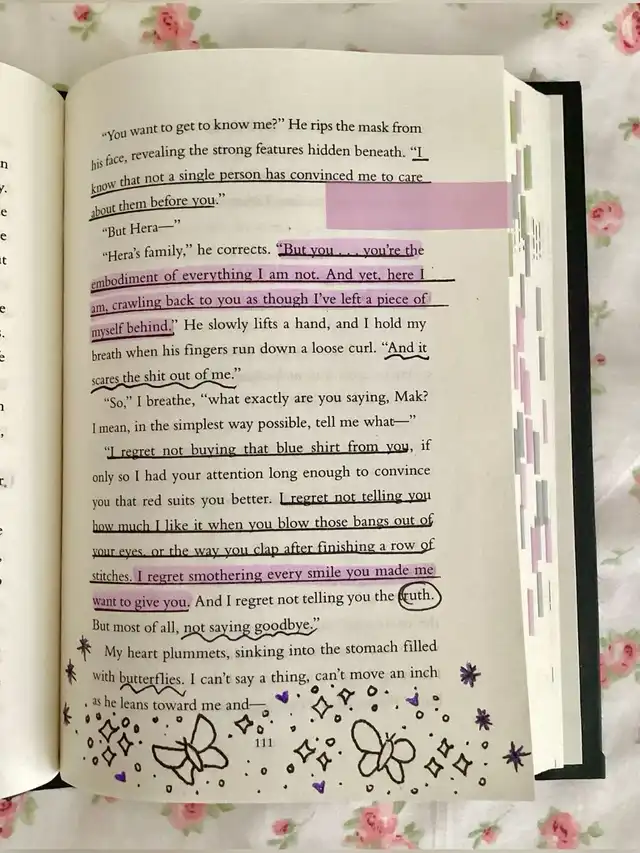 "You want to get to know me?" He rips the mask from
his face, revealing the strong features hidden beneath. "I
know that not a single person has convinced me to care
about them before you."
"But Hera—"
"Hera's family," he corrects. "But you . . . you're the
embodiment of everything I am not. And yet, here I
am, crawling back to you as though I've left a piece of
myself behind." He slowly lifts a hand, and I hold my
breath when his fingers run down a loose curl. "And it
scares the shit out of me."
"So," I breathe, "what exactly are you saying, Mak?
I mean, in the simplest way possible, tell me what—"
"I regret not buying that blue shirt from you, if
only so I had your attention long enough to convince
you that red suits you better. I regret not telling you
how much I like it when you blow those bangs out of
your eyes, or the way you clap after finishing a row of
stitches. I regret smothering every smile you made me
want to give you. And I regret not telling you the truth.
But most of all, not saying goodbye."
My heart plummets, sinking into the stomach filled
with butterflies. I can't say a thing, can't move an inch
as he leans toward me and—
111